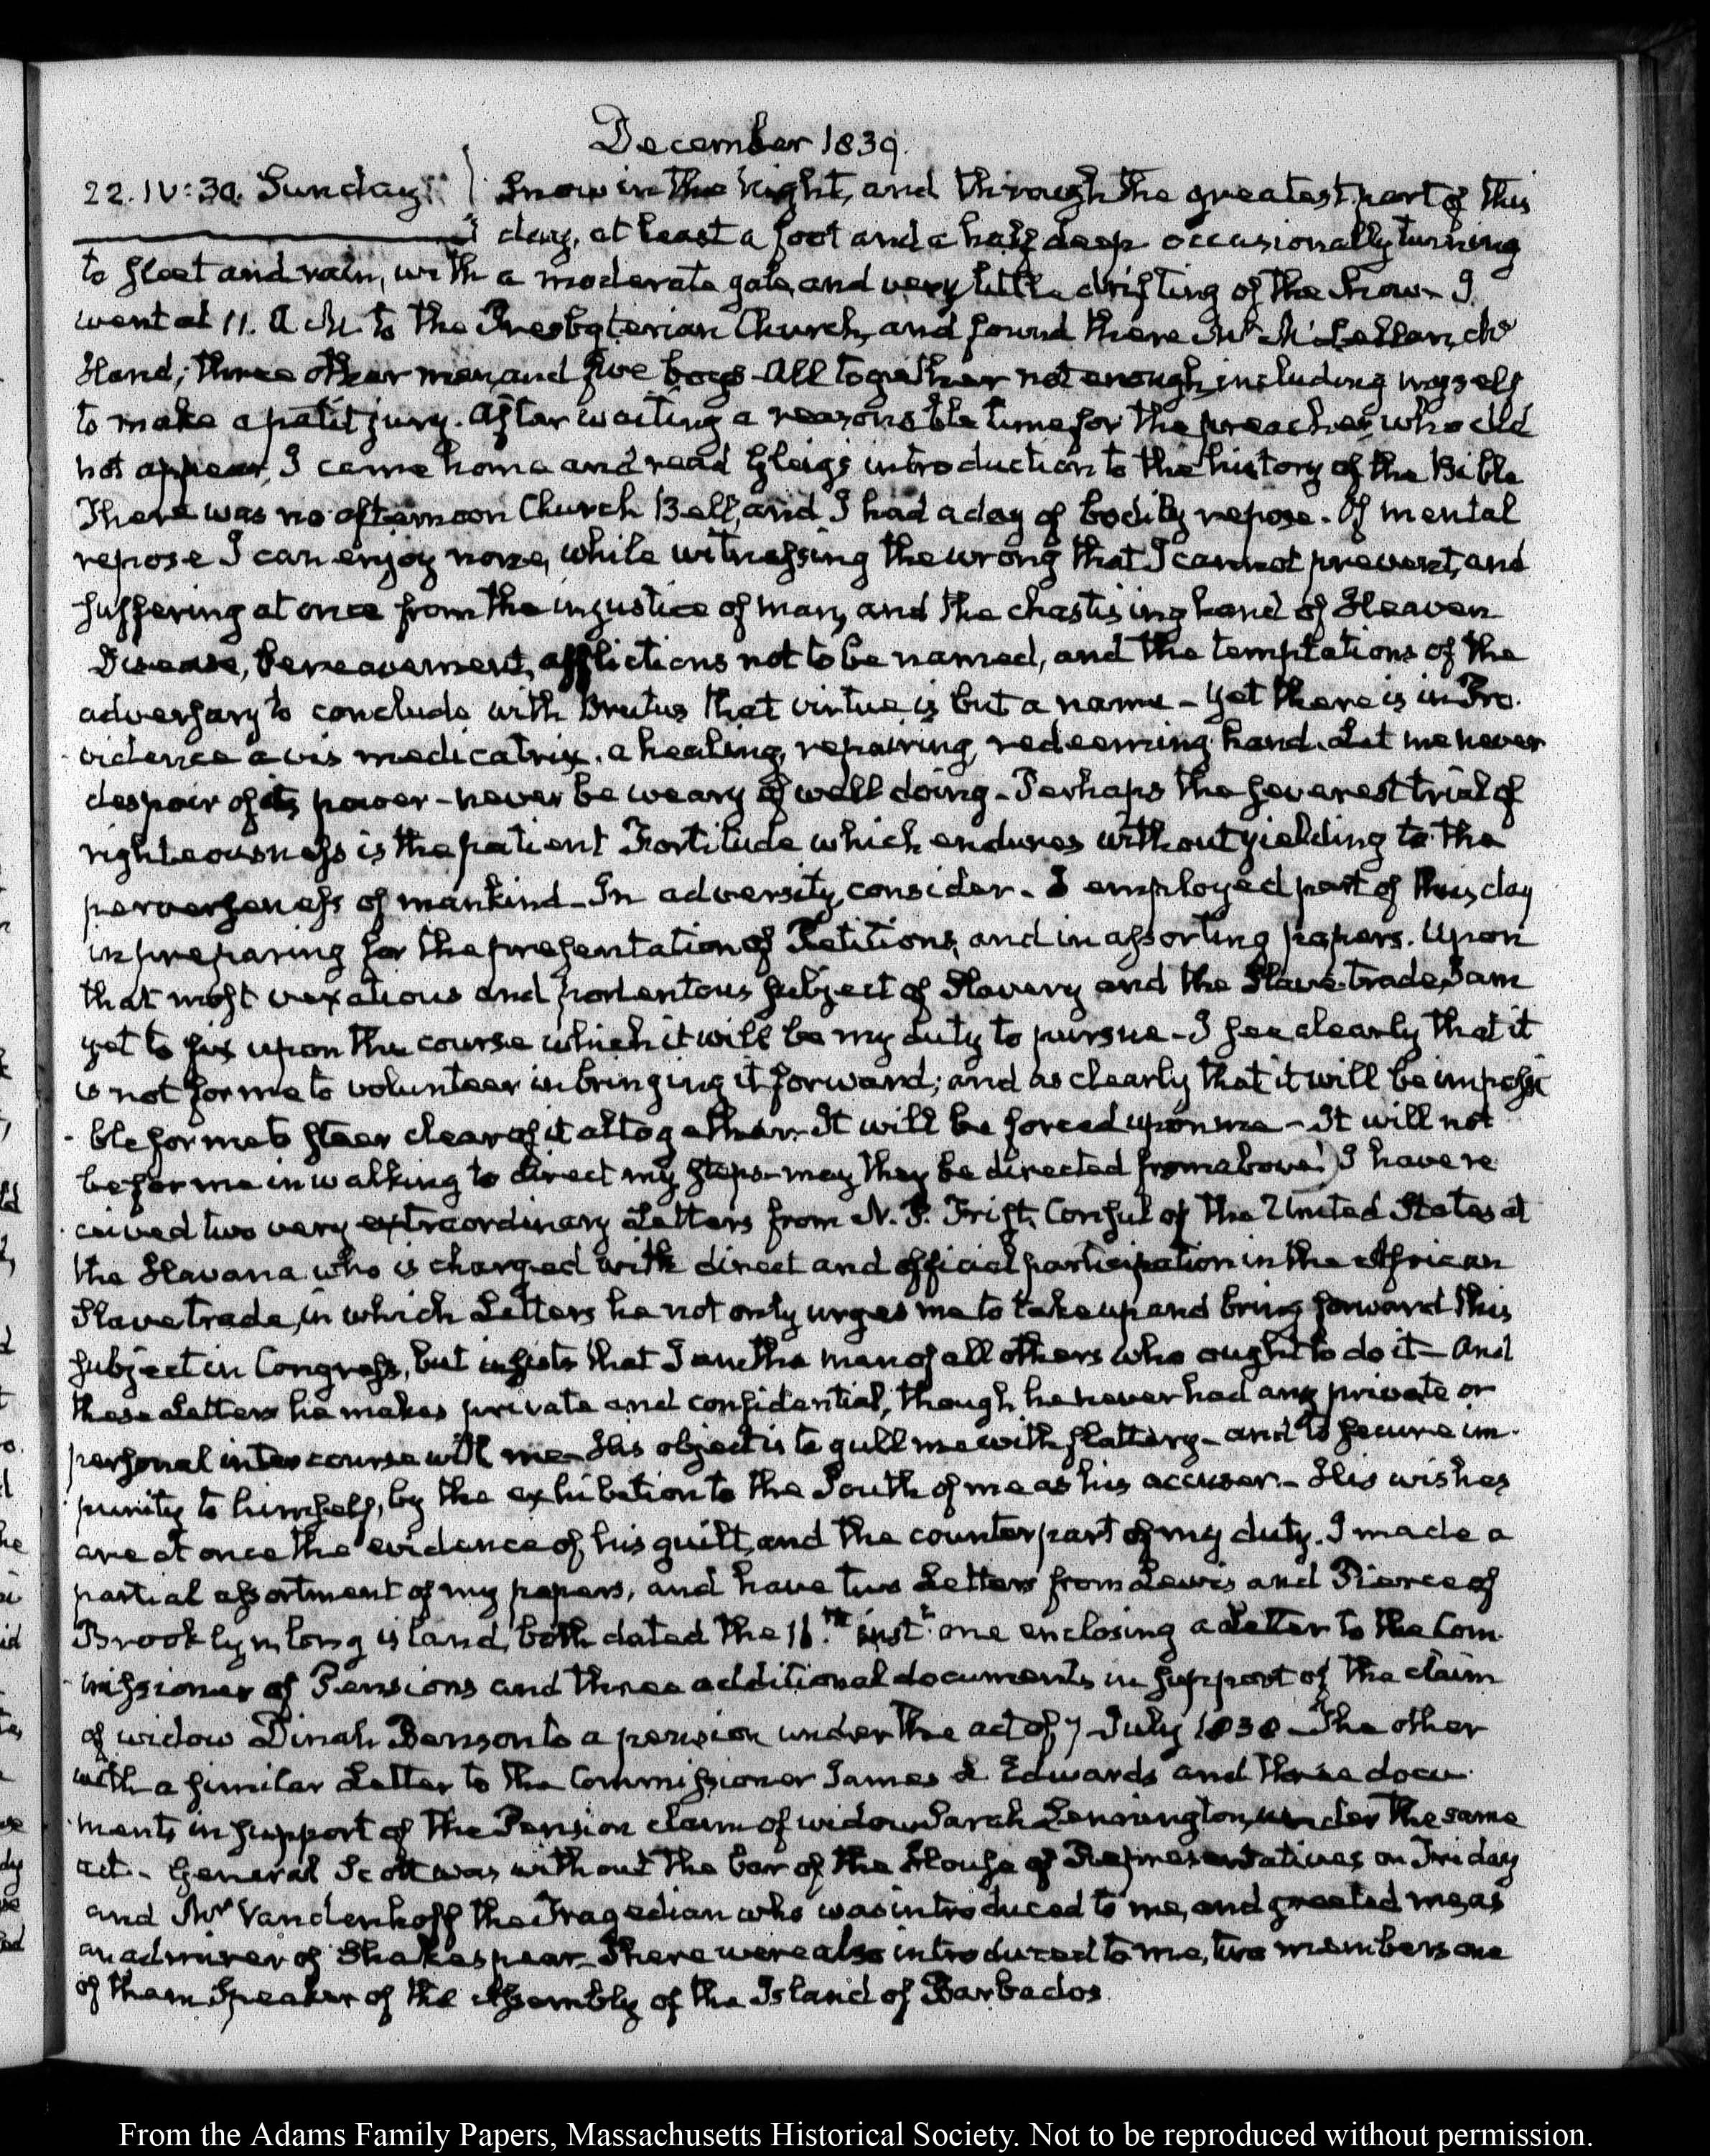 December 1839.
22. IV:30. Sunday. Snow in the Night, and through the greatest part of this
day, at least a foot and a half deep occasionally turning
to sleet and rain, with a moderate gale, and very little drifting of the Snow – I
went at 11. A.M. to the Presbyterian Church, and found there Mr
Hand; three other men, and five boys – All together not enough, including myself
to make a petit jury. After waiting a reasonable time for the preacher, who did
not appear, I came home and read Gleig's introduction to the history of the Bible
There was no afternoon Church Bell, and I had a day of bodily repose. Of mental
repose I can enjoy none, while witnessing the wrong that I cannot prevent, and
suffering at once from the injustice of man, and the chastising hand of Heaven
Disease, bereavement, afflictions not to be named, and the temptations of the
adversary to conclude with Brutus that virtue is but a name – Yet there is in Pro-
vidence a vis medicatrix. a healing, repairing, redeeming hand. Let me never
despair of its power – never be weary of well doing – Perhaps the severest trial of
righteousness is the patient Fortitude which endures without yielding to the
perverseness of mankind – In adversity, consider – I employed part of this day
in preparing for the presentation of Petitions, and in assorting papers. Upon
that most vexatious and portentous subject of Slavery and the Slave-trade, I am
yet to fix upon the course which it will be my duty to pursue – I see clearly that it
is not for me to volunteer in bringing it forward; and as clearly that it will be impossi
ble for me to steer clear of it altogether. It will be forced upon me – It will not
be for me in walking to direct my steps – may they be directed from above! I have re
ceived two very extraordinary Letters from N. P. Trist, Consul of the United States at
the Havana who is charged with direct and official participation in the African
Slave trade, in which Letters he not only urges me to take up and bring forward this
subject in Congress, but insists that I am the man of all others who ought to do it – And
these Letters he makes private and confidential, though he never had any private or
personal intercourse with me – His object is to gull me with flattery – and to secure im-
punity to himself, by the exhibition to the South of me as his accuser – His wishes
are at once the evidence of his guilt, and the counterpart of my duty. I made a
partial assortment of my papers, and have two Letters from Lewis and Pierce of
Brooklyn, Long island, both dated the 16.th inst.t one enclosing a Letter to the Com-
missioner of Pensions and three additional documents in support of the claim
of widow Dinah Benson to a pension under the act of 7 July 1838 – The other
with a similar Letter to the Commissioner James L Edwards and three docu-
ments in support of the Pension claim of widow Sarah under the same
act – General Scott was without the bar of the House of Representatives on Friday
and Mr Vandenhoff the Tragedian who was introduced to me, and greeted me, as
an admirer of Shakespear – There were also introduced to me, two members one
of them Speaker of the Assembly of the Island of Barbados.
From the Adams Family Papers, Massachusetts Historical Society. Not to be reproduced without permission.